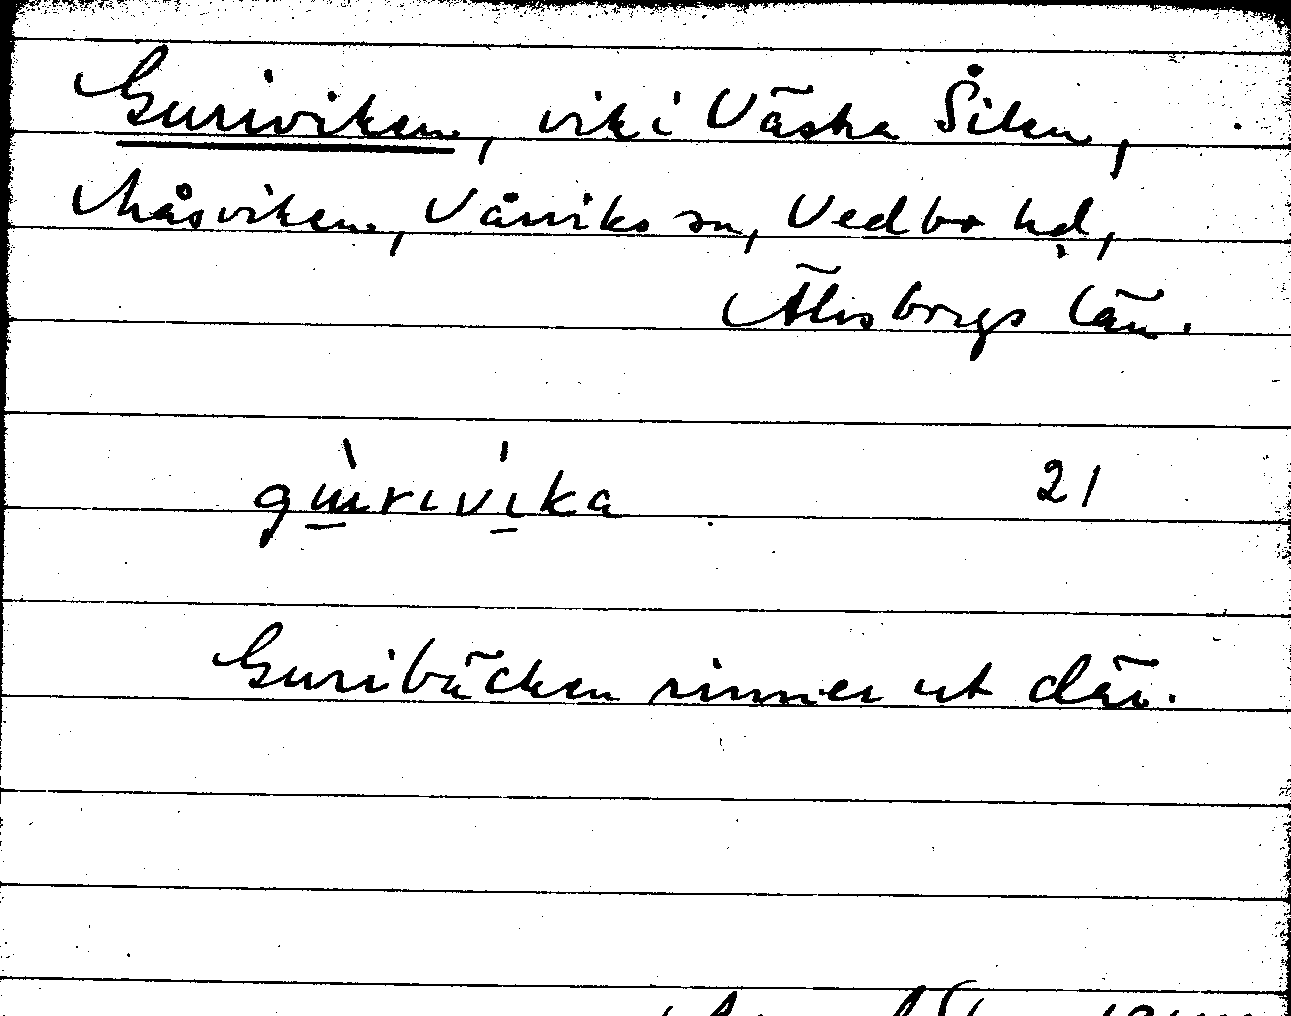 Guriviken, vik i Västra Silen,
Måsviken, Vårviks sn, Vedbo hd,
Älvsborgs län.
21
Guribäcken rinner ut där.